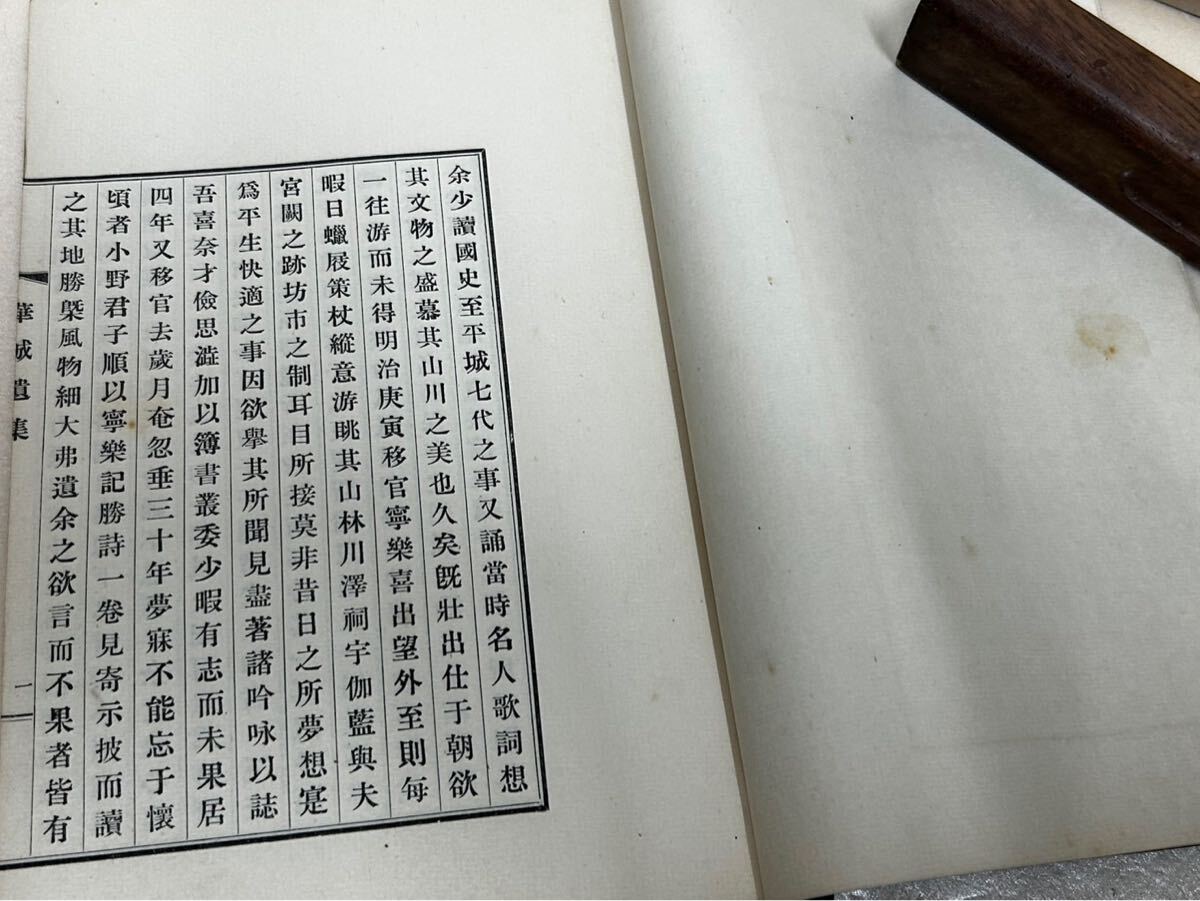 余少讀國史至平城七代之事又誦當時名人歌詞想
其文物之盛慕其山川之美也久矣旣壯出仕于朝欲
一往游而未得明治庚寅移官寧樂喜出望外至則每
暇日蠟屐策杖縱意游眺其山林川澤祠宇伽藍與夫
宮闕之跡坊市之制耳目所接莫非昔日之所夢想寔
爲平生快適之事因欲擧其所聞見盡著諸吟咏以誌
吾喜奈才儉思澁加以簿書叢委少暇有志而未果居
四年又移官去歲月奄忽垂三十年夢寐不能忘于懷
頃者小野君子順以寧樂記勝詩一卷見寄示披而讀
之其地勝槩風物細大弗遺余之欲言而不果者皆有
華城遺集
一